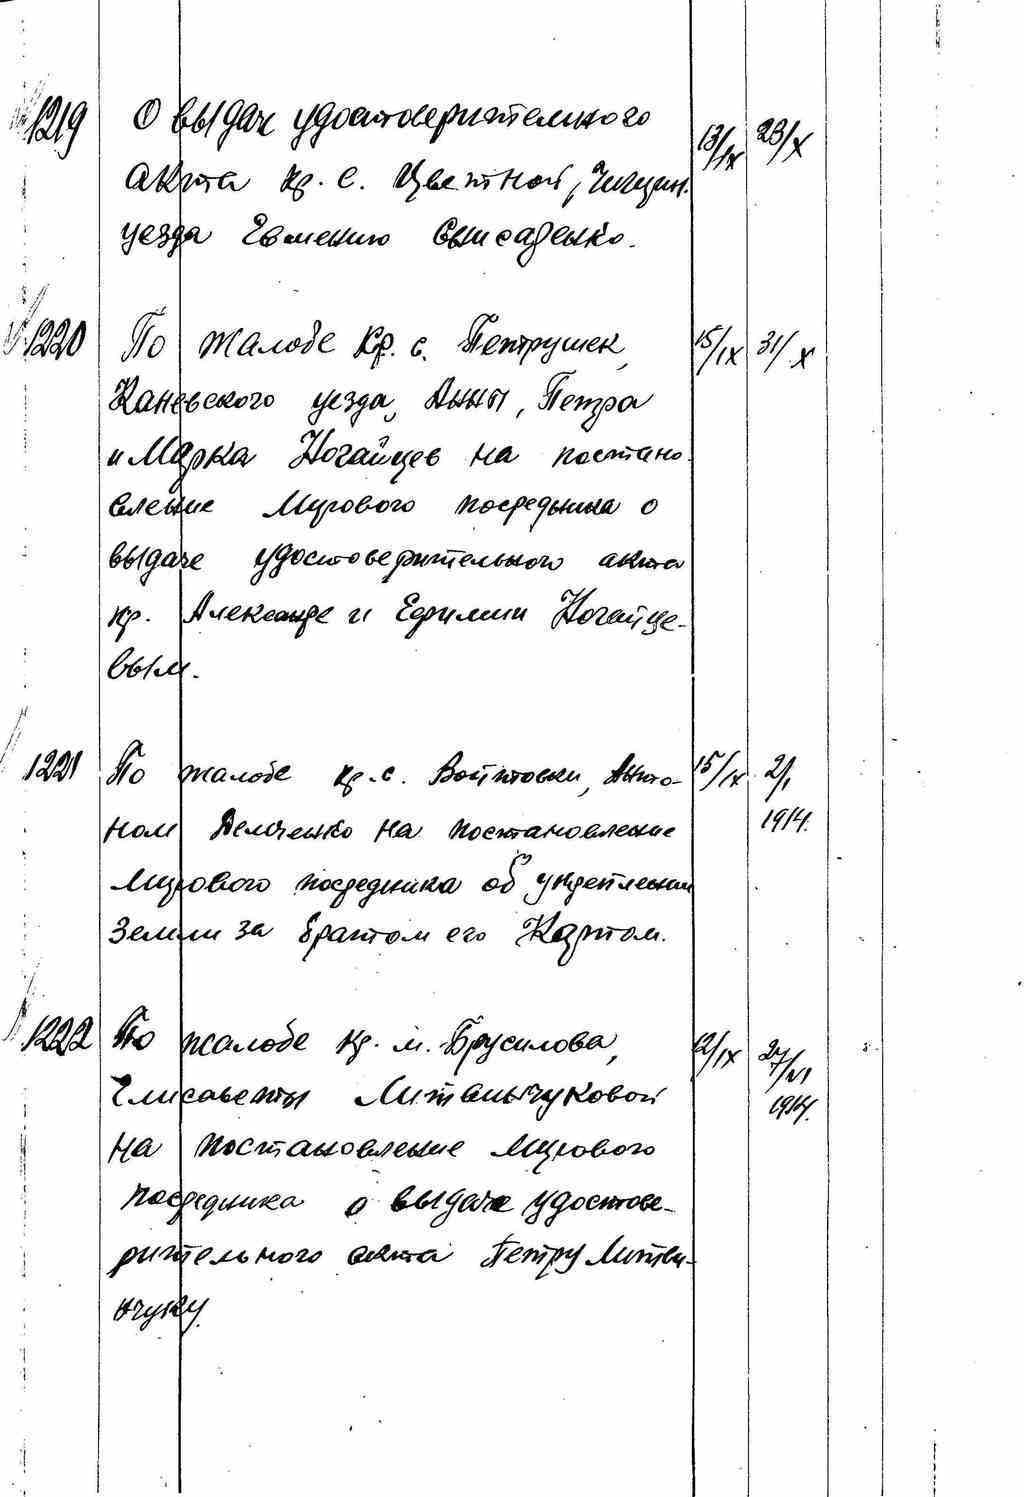 1219 О выдаче удостоверительного 13/IX 23/X
акта кр. с. Цветной, Чигирин.
уезда Евмению
1220 По жалобе кр. с. Петрушек, 15/IX 31/X
Каневского уезда, Анны, Петра
и Марка Ногайцев на постано-
вление Мирового посредника о
выдаче удостоверительного акта
кр. Александре и Ефимии Ногайце-
вым.
1221 По жалобе кр. с. Войтовки, Анто- 15/IX 2/I
ном Демченко на постановление 1914.
Мирового посредника об укреплении
земли за братом его Карпом.
1222 По жалобе кр. м. Брусилова, 12/IX 27/VI
Елисаветы Литвинчуковой 1914.
на постановление Мирового
посредника о выдаче удостове-
рительного акта Петру Литви-
нчуку.